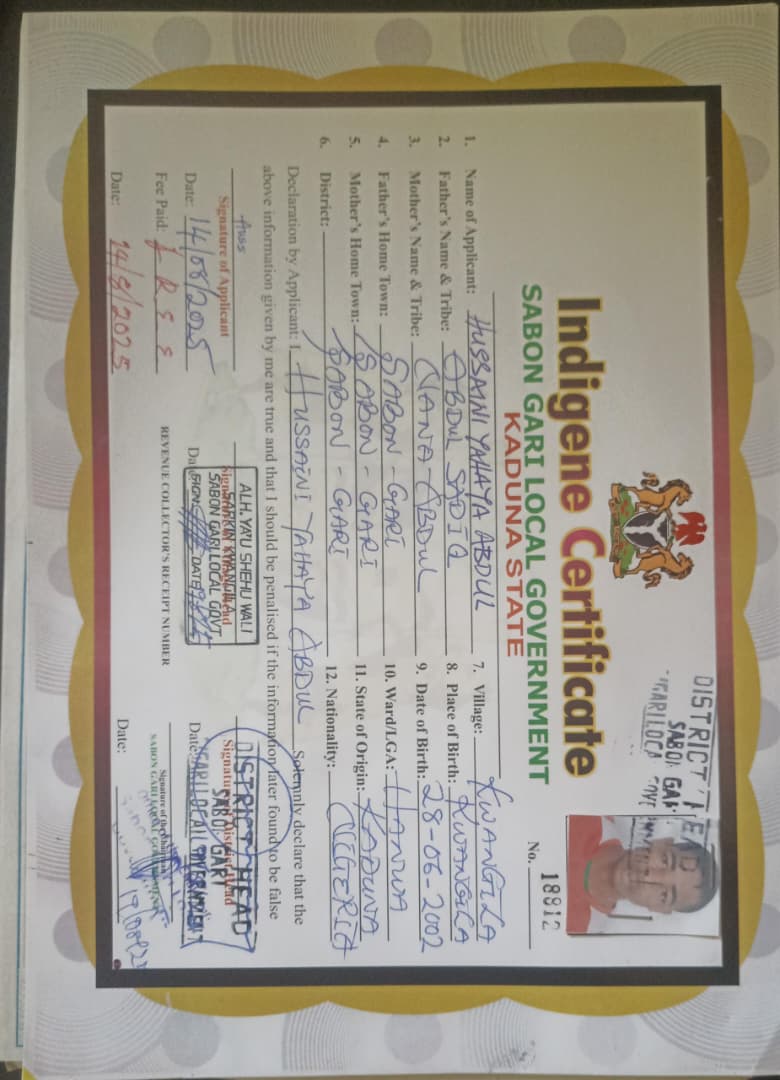 DISTRICT HEAD
SABON GARI
Indigene Certificate
SABON GARI LOCAL GOVERNMENT
KADUNA STATE
No. 18812
1. Name of Applicant: HUSSAINI YAHAYA ABDUL
2. Father's Name & Tribe: ABDUL SADIQ
3. Mother's Name & Tribe: NANA ABDUL
4. Father's Home Town: SABON-GARI
5. Mother's Home Town: SABON-GARI
6. District: SABON-GARI
7. Village: KWANGILA
8. Place of Birth: KWANGILA
9. Date of Birth: 28-06-2002
10. Ward/LGA: HANWA
11. State of Origin: KADUNA
12. Nationality: NIGERIA
Declaration by Applicant: I HUSSAINI YAHAYA ABDUL Solemnly declare that the
above information given by me are true and that I should be penalised if the information later found to be false
Signature of Applicant
Date: 14/08/2025
ALH. YA'U SHEHU WALI
SARKIN KWANGILA
SABON GARI LOCAL GOVT
SIGN DATE
DISTRICT HEAD
SABON GARI
Signature of District Head
Date:
Fee Paid: FREE
REVENUE COLLECTOR'S RECEIPT NUMBER
Signature of the Chairman
SABON GARI LOCAL GOVERNMENT
Date: 14/8/2025
Date: